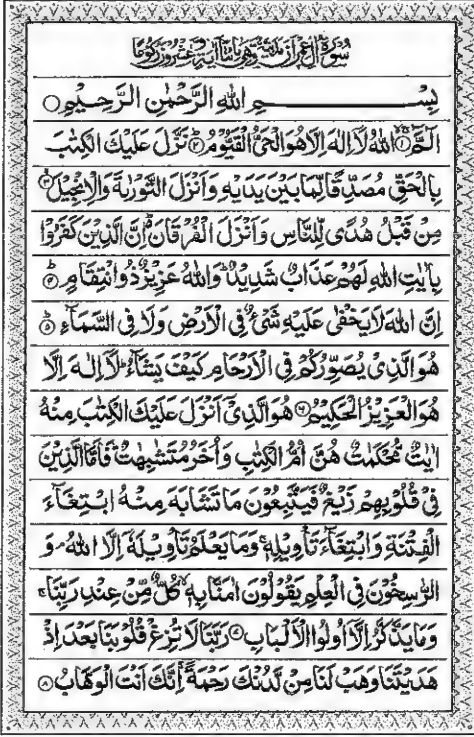 سُوْرَةُ اٰلِ عِمْرٰنَ مَدَنِيَّةٌ وَّهِيَ مِائَتَا اٰيَةٍ وَّعِشْرُوْنَ رُكُوْعًا
بِسْمِ اللّٰهِ الرَّحْمٰنِ الرَّحِيْمِ
الٓمّٓ ۙ﴿۱﴾ اللّٰهُ لَاۤ اِلٰهَ اِلَّا هُوَ الْحَيُّ الْقَيُّوْمُ ؕ﴿۲﴾ نَزَّلَ عَلَيْكَ الْكِتٰبَ
بِالْحَقِّ مُصَدِّقًا لِّمَا بَيْنَ يَدَيْهِ وَاَنْزَلَ التَّوْرٰىةَ وَالْاِنْجِيْلَ ۙ﴿۳﴾
مِنْ قَبْلُ هُدًى لِّلنَّاسِ وَاَنْزَلَ الْفُرْقَانَ ؕ اِنَّ الَّذِيْنَ كَفَرُوْا
بِاٰيٰتِ اللّٰهِ لَهُمْ عَذَابٌ شَدِيْدٌ ؕ وَاللّٰهُ عَزِيْزٌ ذُو انْتِقَامٍ ؕ﴿۴﴾
اِنَّ اللّٰهَ لَا يَخْفٰى عَلَيْهِ شَيْءٌ فِى الْاَرْضِ وَلَا فِى السَّمَآءِ ؕ﴿۵﴾
هُوَ الَّذِيْ يُصَوِّرُكُمْ فِى الْاَرْحَامِ كَيْفَ يَشَآءُ ؕ لَاۤ اِلٰهَ اِلَّا
هُوَ الْعَزِيْزُ الْحَكِيْمُ ﴿۶﴾ هُوَ الَّذِيْۤ اَنْزَلَ عَلَيْكَ الْكِتٰبَ مِنْهُ
اٰيٰتٌ مُّحْكَمٰتٌ هُنَّ اُمُّ الْكِتٰبِ وَاُخَرُ مُتَشٰبِهٰتٌ ؕ فَاَمَّا الَّذِيْنَ
فِيْ قُلُوْبِهِمْ زَيْغٌ فَيَتَّبِعُوْنَ مَا تَشَابَهَ مِنْهُ ابْتِغَآءَ
الْفِتْنَةِ وَابْتِغَآءَ تَاْوِيْلِهٖ ۚ وَمَا يَعْلَمُ تَاْوِيْلَهٗۤ اِلَّا اللّٰهُ ۘ وَ
الرّٰسِخُوْنَ فِى الْعِلْمِ يَقُوْلُوْنَ اٰمَنَّا بِهٖ ۙ كُلٌّ مِّنْ عِنْدِ رَبِّنَا ۚ
وَمَا يَذَّكَّرُ اِلَّاۤ اُولُوا الْاَلْبَابِ ﴿۷﴾ رَبَّنَا لَا تُزِغْ قُلُوْبَنَا بَعْدَ اِذْ
هَدَيْتَنَا وَهَبْ لَنَا مِنْ لَّدُنْكَ رَحْمَةً ۚ اِنَّكَ اَنْتَ الْوَهَّابُ ﴿۸﴾